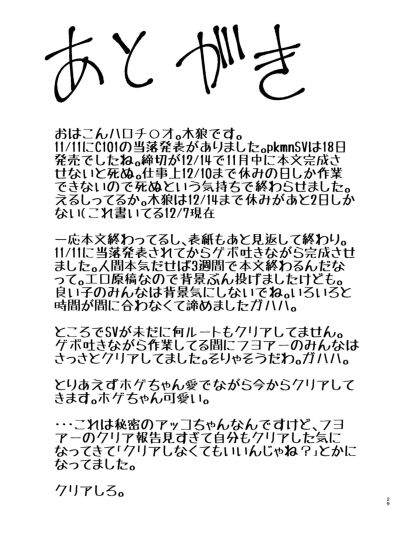 あとがき
おはこんハロチ〇オ。木狼です。
11/11にC101の当落発表がありました。pkmnSVは18日
発売でしたね。締切が12/14で11月中に本文完成さ
せないと死ぬ。仕事上12/10まで休みの日しか作業
できないので死ぬという気持ちで終わらせました。
えるしってるか。木狼は12/14まで休みがあと2日しか
ない(これ書いてる12/7現在
一応本文終わってるし、表紙もあと見返して終わり。
11/11に当落発表されてからゲボ吐きながら完成させ
ました。人間本気だせば3週間で本文終わるんだな
って。エロ原稿なので背景ぶん投げましたけども。
良い子のみんなは背景気にしないでね。いろいろと
時間が間に合わなくて諦めましたガハハ。
ところでSVが未だに何ルートもクリアしてません。
ゲボ吐きながら作業してる間にフヨアーのみんなは
さっさとクリアしてました。そりゃそうだわ。ガハハ。
とりあえずホゲちゃん愛でながら今からクリアして
きます。ホゲちゃん可愛い。
・・・これは秘密のアッコちゃんなんですけど、フヨ
アーのクリア報告見すぎて自分もクリアした気に
なってきて「クリアしなくてもいいんじゃね?」とかに
なってました。
クリアしろ。
29